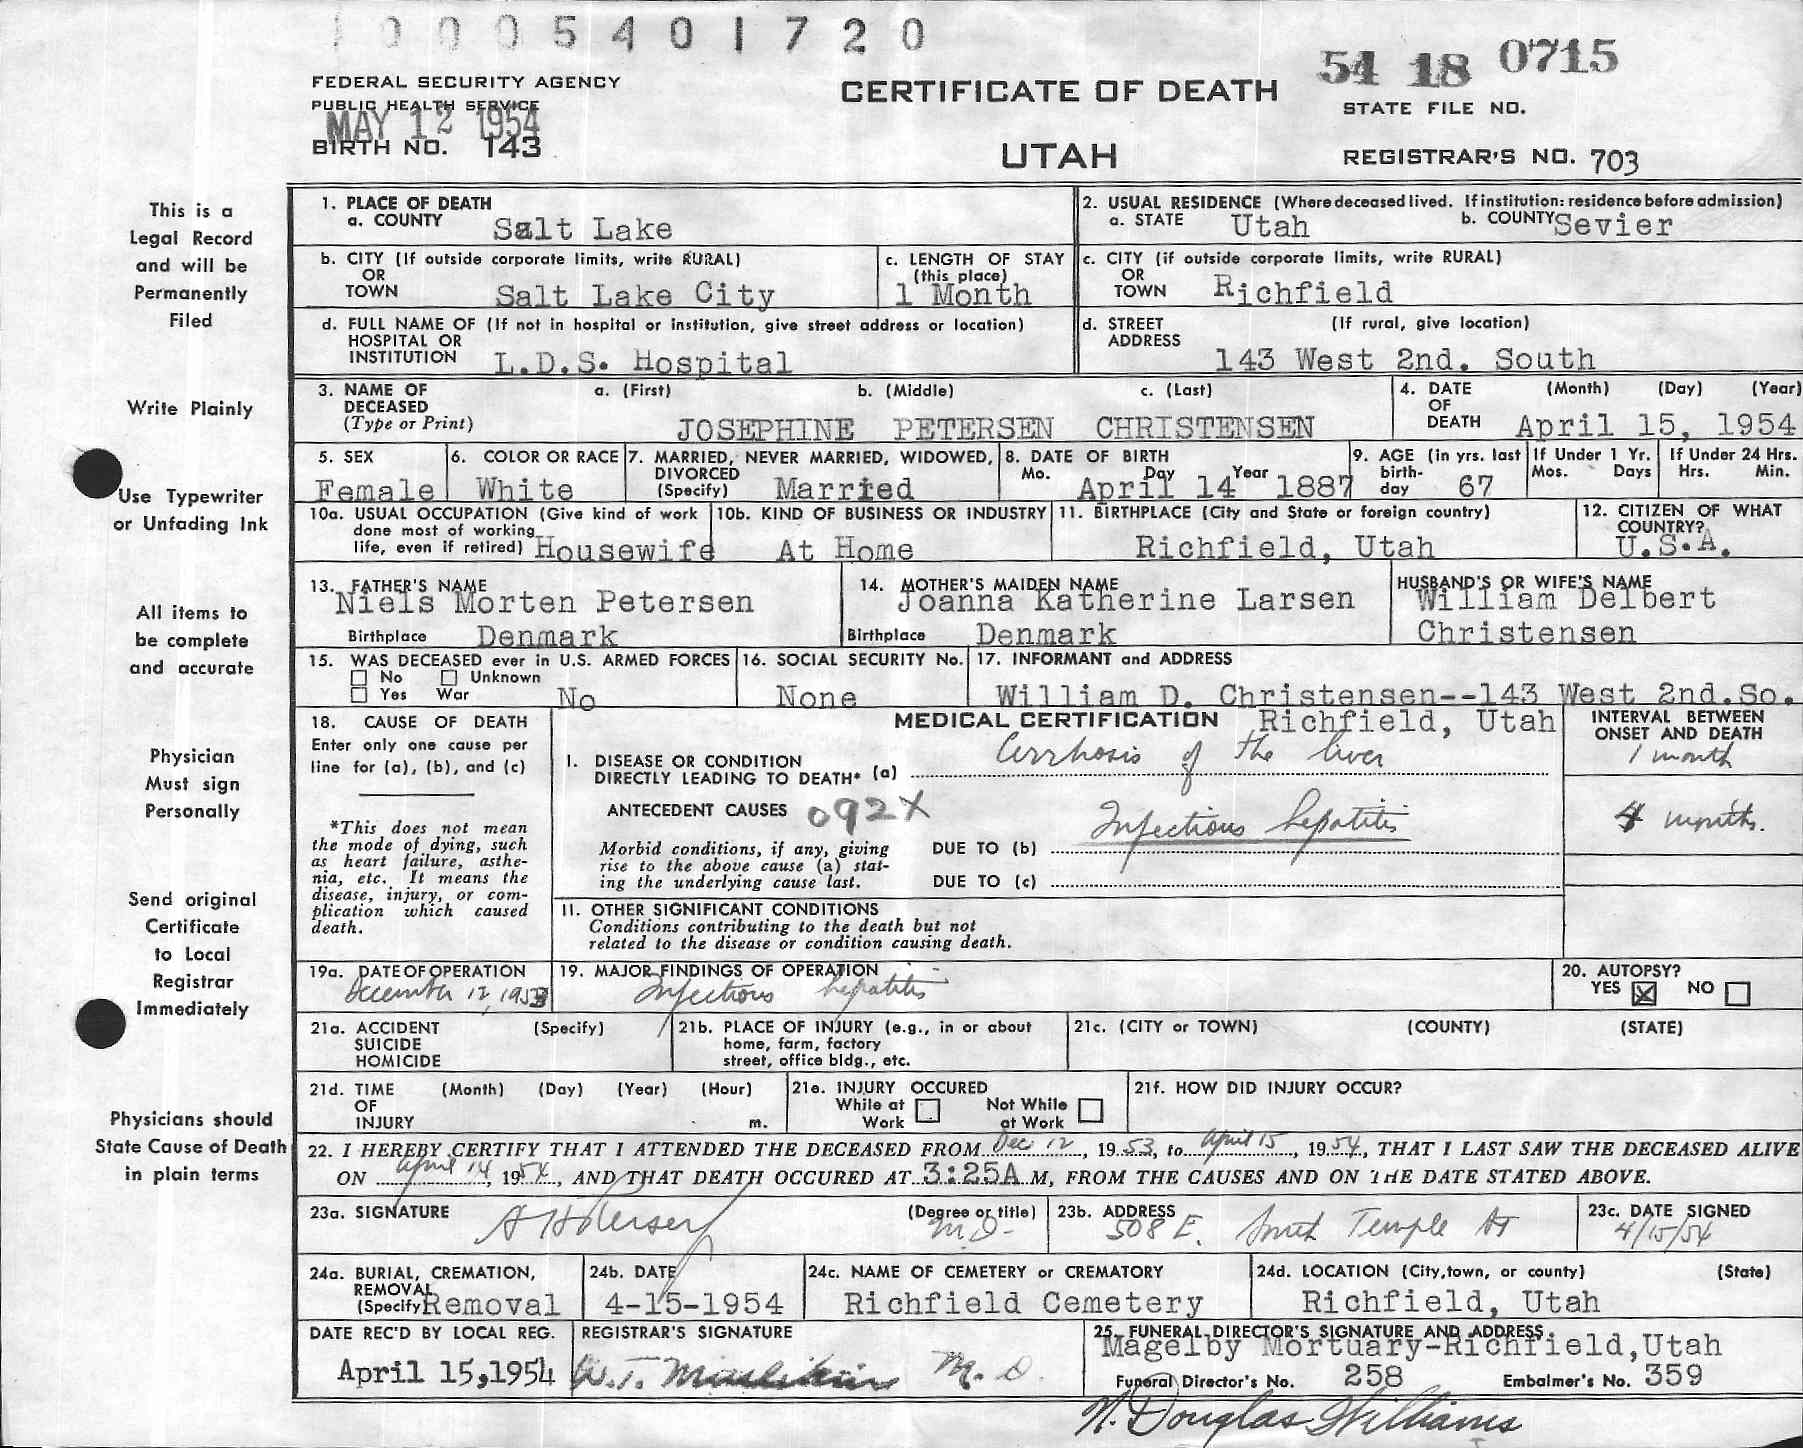 1 0 0 0 5 4 0 1 7 2 0
54 18 0715
FEDERAL SECURITY AGENCY
PUBLIC HEALTH SERVICE
MAY 12 1954
BIRTH NO. 143
CERTIFICATE OF DEATH
UTAH
STATE FILE NO.
REGISTRAR'S NO. 703
This is a
Legal Record
and will be
Permanently
Filed
Write Plainly
Use Typewriter
or Unfading Ink
All items to
be complete
and accurate
Physician
Must sign
Personally
Send original
Certificate
to Local
Registrar
Immediately
Physicians should
State Cause of Death
in plain terms
1. PLACE OF DEATH
a. COUNTY Salt Lake
2. USUAL RESIDENCE (Where deceased lived. If institution: residence before admission)
a. STATE Utah b. COUNTY Sevier
b. CITY (If outside corporate limits, write RURAL)
OR
TOWN Salt Lake City
c. LENGTH OF STAY
(this place)
1 Month
c. CITY (if outside corporate limits, write RURAL)
OR
TOWN Richfield
d. FULL NAME OF (If not in hospital or institution, give street address or location)
HOSPITAL OR
INSTITUTION L.D.S. Hospital
d. STREET (If rural, give location)
ADDRESS
143 West 2nd. South
3. NAME OF a. (First) b. (Middle) c. (Last)
DECEASED
(Type or Print) JOSEPHINE PETERSEN CHRISTENSEN
4. DATE (Month) (Day) (Year)
OF
DEATH April 15, 1954
5. SEX
Female
6. COLOR OR RACE
White
7. MARRIED, NEVER MARRIED, WIDOWED,
DIVORCED
(Specify) Married
8. DATE OF BIRTH
Mo. Day Year
April 14 1887
9. AGE (in yrs. last
birth-
day 67
If Under 1 Yr.
Mos. Days
If Under 24 Hrs.
Hrs. Min.
10a. USUAL OCCUPATION (Give kind of work
done most of working
life, even if retired) Housewife
10b. KIND OF BUSINESS OR INDUSTRY
At Home
11. BIRTHPLACE (City and State or foreign country)
Richfield, Utah
12. CITIZEN OF WHAT
COUNTRY?
U.S.A.
13. FATHER'S NAME
Niels Morten Petersen
Birthplace Denmark
14. MOTHER'S MAIDEN NAME
Joanna Katherine Larsen
Birthplace Denmark
HUSBAND'S OR WIFE'S NAME
William Delbert
Christensen
15. WAS DECEASED ever in U.S. ARMED FORCES
No Unknown
Yes War No
16. SOCIAL SECURITY No.
None
17. INFORMANT and ADDRESS
William D. Christensen--143 West 2nd.So.
Richfield, Utah
18. CAUSE OF DEATH
Enter only one cause per
line for (a), (b), and (c)
*This does not mean
the mode of dying, such
as heart failure, asthe-
nia, etc. It means the
disease, injury, or com-
plication which caused
death.
MEDICAL CERTIFICATION
INTERVAL BETWEEN
ONSET AND DEATH
I. DISEASE OR CONDITION
DIRECTLY LEADING TO DEATH* (a) Cirrhosis of the liver
1 month
ANTECEDENT CAUSES 092X
Morbid conditions, if any, giving
rise to the above cause (a) stat-
ing the underlying cause last.
DUE TO (b) Infectious hepatitis
4 months.
DUE TO (c)
II. OTHER SIGNIFICANT CONDITIONS
Conditions contributing to the death but not
related to the disease or condition causing death.
19a. DATE OF OPERATION
December 12, 1953
19. MAJOR FINDINGS OF OPERATION
Infectious hepatitis
20. AUTOPSY?
YES X NO
21a. ACCIDENT (Specify)
SUICIDE
HOMICIDE
21b. PLACE OF INJURY (e.g., in or about
home, farm, factory
street, office bldg., etc.
21c. (CITY or TOWN) (COUNTY) (STATE)
21d. TIME (Month) (Day) (Year) (Hour)
OF
INJURY m.
21e. INJURY OCCURED
While at
Work
Not While
at Work
21f. HOW DID INJURY OCCUR?
22. I HEREBY CERTIFY THAT I ATTENDED THE DECEASED FROM Dec 12, 1953, to April 15, 1954, THAT I LAST SAW THE DECEASED ALIVE
ON April 14, 1954, AND THAT DEATH OCCURED AT 3:25A M, FROM THE CAUSES AND ON THE DATE STATED ABOVE.
23a. SIGNATURE
(Degree or title)
M.D.
23b. ADDRESS
508 E. South Temple St
23c. DATE SIGNED
4/15/54
24a. BURIAL, CREMATION,
REMOVAL
(Specify) Removal
24b. DATE
4-15-1954
24c. NAME OF CEMETERY or CREMATORY
Richfield Cemetery
24d. LOCATION (City, town, or county) (State)
Richfield, Utah
DATE REC'D BY LOCAL REG.
April 15,1954
REGISTRAR'S SIGNATURE
W.T. M.D.
25. FUNERAL DIRECTOR'S SIGNATURE AND ADDRESS.
Magelby Mortuary-Richfield,Utah
Funeral Director's No. 258 Embalmer's No. 359
N. Douglas Williams